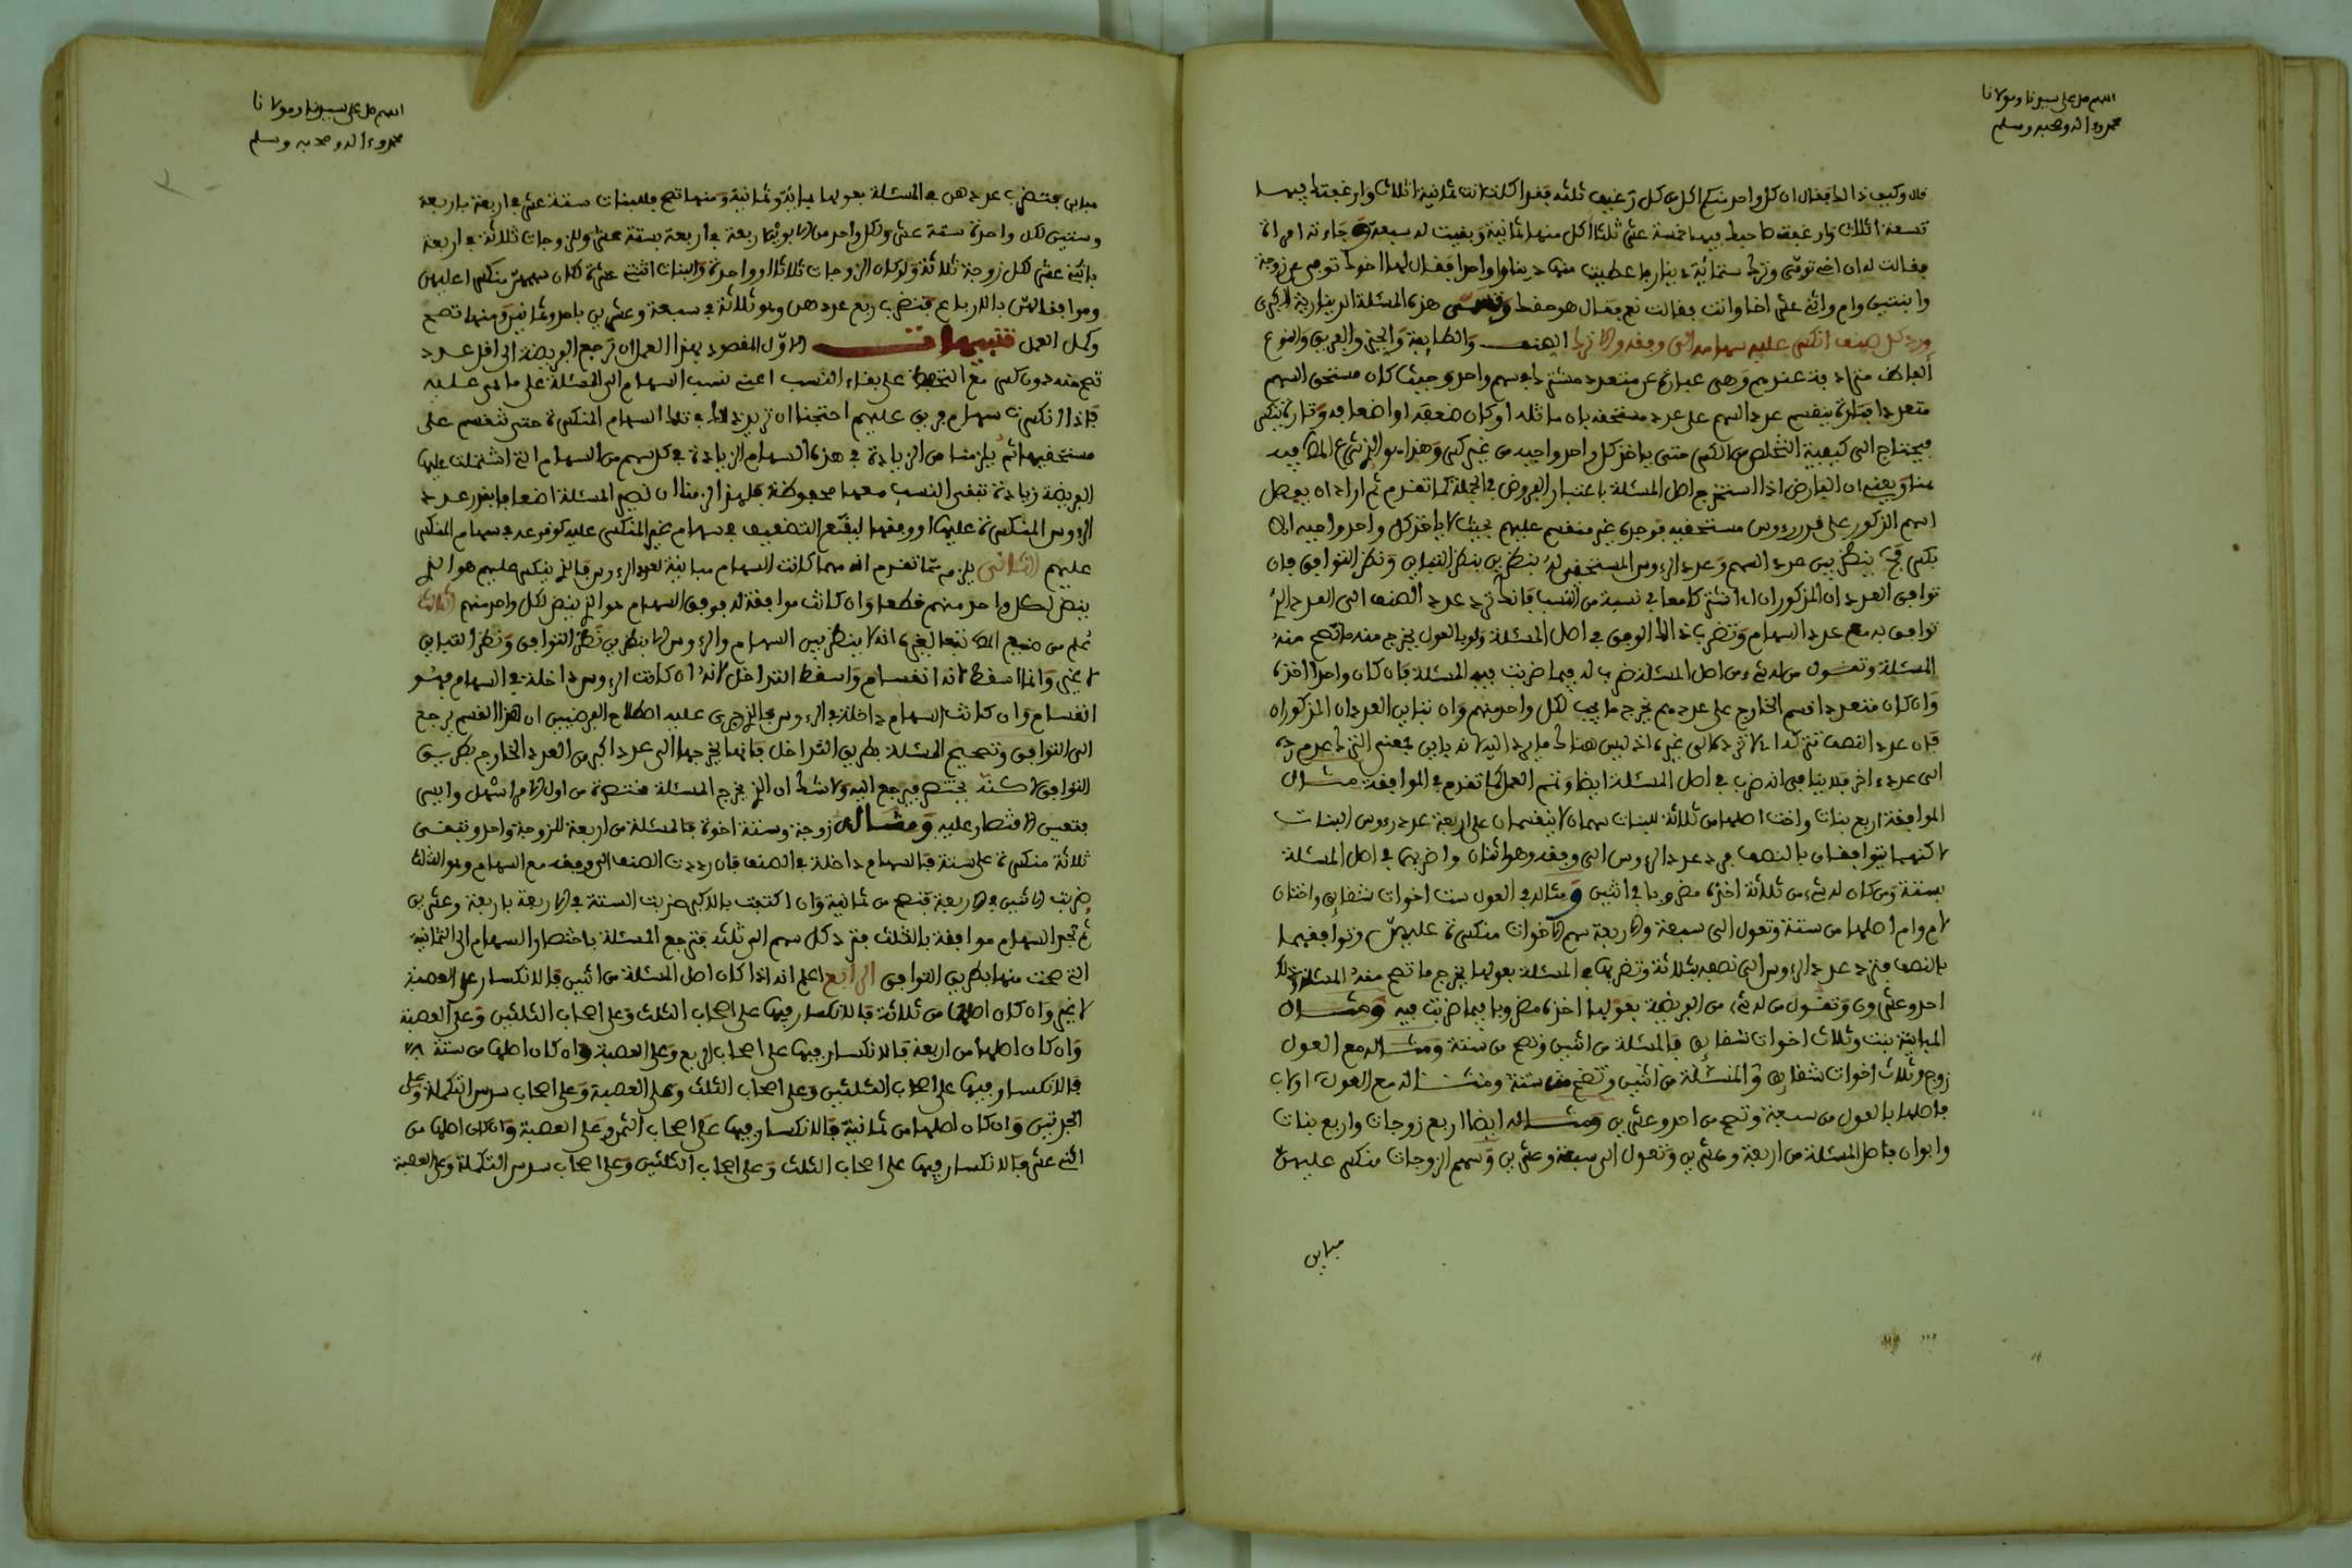 اللهم صل على سيدنا ومولانا
محمد وءاله وصحبه وسلم
قال وكيف ذالك فقال ان كل واحد منكم اكل من كل رغيف ثلثه فقد اكلت انت ثمانية اثلاث وارغفتك فيها
تسعة اثلاث وارغفة صاحبك فيها خمسة عشر ثلثا اكل منها ثمانية وبقيت له سبعة وجاءته امراة
فقالت له ان اخي توفي وترك ستمائة دينار فاعطيت منها دينارا واحدا فقال لها اخوك توفي عن زوجة
وابنتين وام واثني عشر اخا وانت فقالت نعم فقال هو حقك وتسمى هذه المسئلة الدينارية الكبرى
ورد كل صنف انكسر عليه سهامه الى وفقه والا فاتركه الصنف والطايفة والحيز والفريق والنوع
الفاظ مترادفة عندهم وهي عبارة عن متعدد مشترك في سهم واحد وحيث كان مستحق السهم
متعددا فتارة ينقسم عدد السهم على عدد مستحقه بان ماثله او كان ضعفه او اضعافه وتارة ينكسر
فيحتاج الى كيفية التخلص من الكسر حتى ياخذ كل واحد واجبه من غير كسر وهذا هو الذي شرع المص فيه
هنا ويعني ان الفارض اذا استخرج اصل المسئلة باعتبار الفروض في الجملة كما تقدم ثم اراد ان يفصل
السهم المذكور على قدر رءوس مستحقيه فوجده غير منقسم عليهم بحيث لا ياخذ كل واحد واجبه الا
بكسر فح ينظر بين عدد السهم وعدد الرءوس المستحقين له بنظرين بنظر التباين ونظر التوافق فان
توافق العددان المذكوران اي اشتركا معا في نسبة من النسب فانك ترد عدد الصنف الى العدد الذي
توافق به مع عدد السهام وتضرب ذالك الوفق في اصل المسئلة ولو بالعول يخرج منه ما تصح منه
المسئلة وتقول من له شيء من اصل المسئلة ضرب له فيما ضربت فيه المسئلة فان كان واحدا اخذه
وان كان متعددا قسم الخارج على عددهم يخرج ما يجب لكل واحد منهم وان تباين العددان المذكوران
فان عدد الصنف تتركه اي لا ترده الى غيره اذ ليس هنالك ما يرد اليه لانه يابى بمعنى الترك عدم رده
الى عدد اخر فلا ينافي انه ضرب في اصل المسئلة ايضا وتمم العمل كما تقدم في الموافقة مثال
الموافقة اربع بنات واخت اصلها من ثلاثة للبنات سهمان لا ينقسمان على اربعة عدد رءوس البنات
لاكنهما يتوافقان بالنصف فرد عدد الرءوس الى وفقه وهو اثنان واضربهما في اصل المسئلة
بستة ومن كان له شيء من ثلاثة اخذه مضروبا في اثنين ومثاله في العول ست اخوات شقايق واختان
لام وام اصلها من ستة وتعول الى سبعة والاربعة سهم الاخوات منكسرة عليهن وتوافقهما
بالنصف فترد عدد الرءوس الى نصفه بثلاثة وتضربها في المسئلة بعولها يخرج ما تصح منه المسئلة وذلك
احد وعشرون وتقول من له شيء من الفريضة بعولها اخذه مضروبا فيما ضربت فيه ومثال
المباينة بنت وثلاث اخوات شقايق فالمسئلة من اثنين وتصح من ستة ومثاله مع العول
زوج وثلاث اخوات شقايق والمسئلة من اثنين وتصح من ستة ومثاله مع العول اولاب
فاصلها بالعول من سبعة وتصح من احد وعشرين ومثاله ايضا اربع زوجات واربع بنات
وابوان فاصل المسئلة من اربعة وعشرين وتعول الى سبعة وعشرين وسهم الزوجات منكسر عليهن
مباين
اللهم صل على سيدنا ومولانا
محمد وءاله وصحبه وسلم
مباين فتضرب عددهن في المسئلة بعولها بمائة وثمانية ومنها تصح فللبنات ستة عشر في اربعة باربعة
وستين لكل واحدة ستة عشر ولكل واحد من الابوين اربعة في اربعة بستة عشر وللزوجات ثلاثة في اربعة
باثني عشر لكل زوجة ثلاثة ولو كان الزوجات ثلاثا او واحدة والبنات اثنتي عشرة لكان سهمهن منكسرا عليهن
وموافقا لهن بالارباع فتضرب ربع عددهن وهو ثلاثة في سبعة وعشرين باحد وثمانين ومنها تصح
وكمل العمل تنبيهات الاول المقصود بهذا العمل ان ترجع الفريضة الى اقل عدد
تصح منه دون كسر مع التحفظ على بقاء النسب اعني نسب السهام الى المسئلة على ما هي عليه
فاذا انكسرت سهام فريق عليهم احتجنا ان نزيد في تلك السهام المنكسرة حتى تنقسم على
مستحقيها ثم يلزمنا من الزيادة في هذه السهام الزيادة في كل سهم من السهام التي اشتملت عليها
الفريضة زيادة تبقى النسب معها محفوظة فلهذا لزمنا ان نصير المسئلة اضعافا بقدر عدد
الرءوس المنكسرة عليها او وفقها ليقع التضعيف في سهام غير المنكسر عليه كوقوعه في سهام المنكسر
عليهم الثاني يلزم مما تقدم انه مهما كانت السهام مباينة لعدد الرءوس فالذي ينكسر عليهم هو الذي
ينض لكل واحد منهم قطعا وان كانت موافقة له فوفق السهام هو الذي ينض لكل واحد منهم الثالث
علم من صنيع المص تبعا لغيره انه لا ينظر بين السهام والرءوس الا بنظرين نظر التوافق ونظر التباين
لا غير وانما اسقط لانه انقسام واسقط التداخل لانه ان كانت الرءوس داخلة في السهام فهو
انقسام وان كانت السهام داخلة في الرءوس فالذي جرى عليه اصطلاح الفرضيين ان هذا القسم يرجع
الى التوافق وتصحيح المسئلة بطريق التداخل فانما يخرجها الى عدد اكبر من العدد الخارج بطريق
التوافق لاكنه يختصر فيرجع اليه ولا شك ان الذي يخرج المسئلة مختصرة من اول الامر اسهل وابين
فتعين الاقتصار عليه ومثاله زوجة وستة اخوة فالمسئلة من اربعة للزوجة واحد وتبقى
ثلاثة منكسرة على ستة فالسهام داخلة في الصنف فان رددت الصنف الى وفقه مع السهام وهو الثلث
ضربت الاثنين في الاربعة فتصح من ثمانية وان اكتفيت بالاكبر ضربت الستة في الاربعة باربعة وعشرين
ثم تجد السهام موافقة بالثلث فترد كل سهم الى ثلثه فترجع المسئلة باختصار السهام الى الثمانية
التي صحت منها بطريق التوافق الرابع اعلم انه اذا كان اصل المسئلة من اثنين فالانكسار على العصبة
لا غير وان كان اصلها من ثلاثة فالانكسار فيها على اصحاب الثلث وعلى اصحاب الثلثين وعلى العصبة
وان كان اصلها من اربعة فالانكسار فيها على اصحاب الربع وعلى العصبة وان كان اصلها من ستة
فالانكسار فيها على اصحاب الثلثين وعلى اصحاب الثلث وعلى العصبة وعلى اصحاب سدس التكملة وعلى
الجدتين وان كان اصلها من ثمانية فالانكسار فيها على اصحاب الثمن وعلى العصبة وان كان اصلها من
اثني عشر فالانكسار فيها على اصحاب الثلث وعلى اصحاب الثلثين وعلى اصحاب سدس التكملة وعلى العصبة